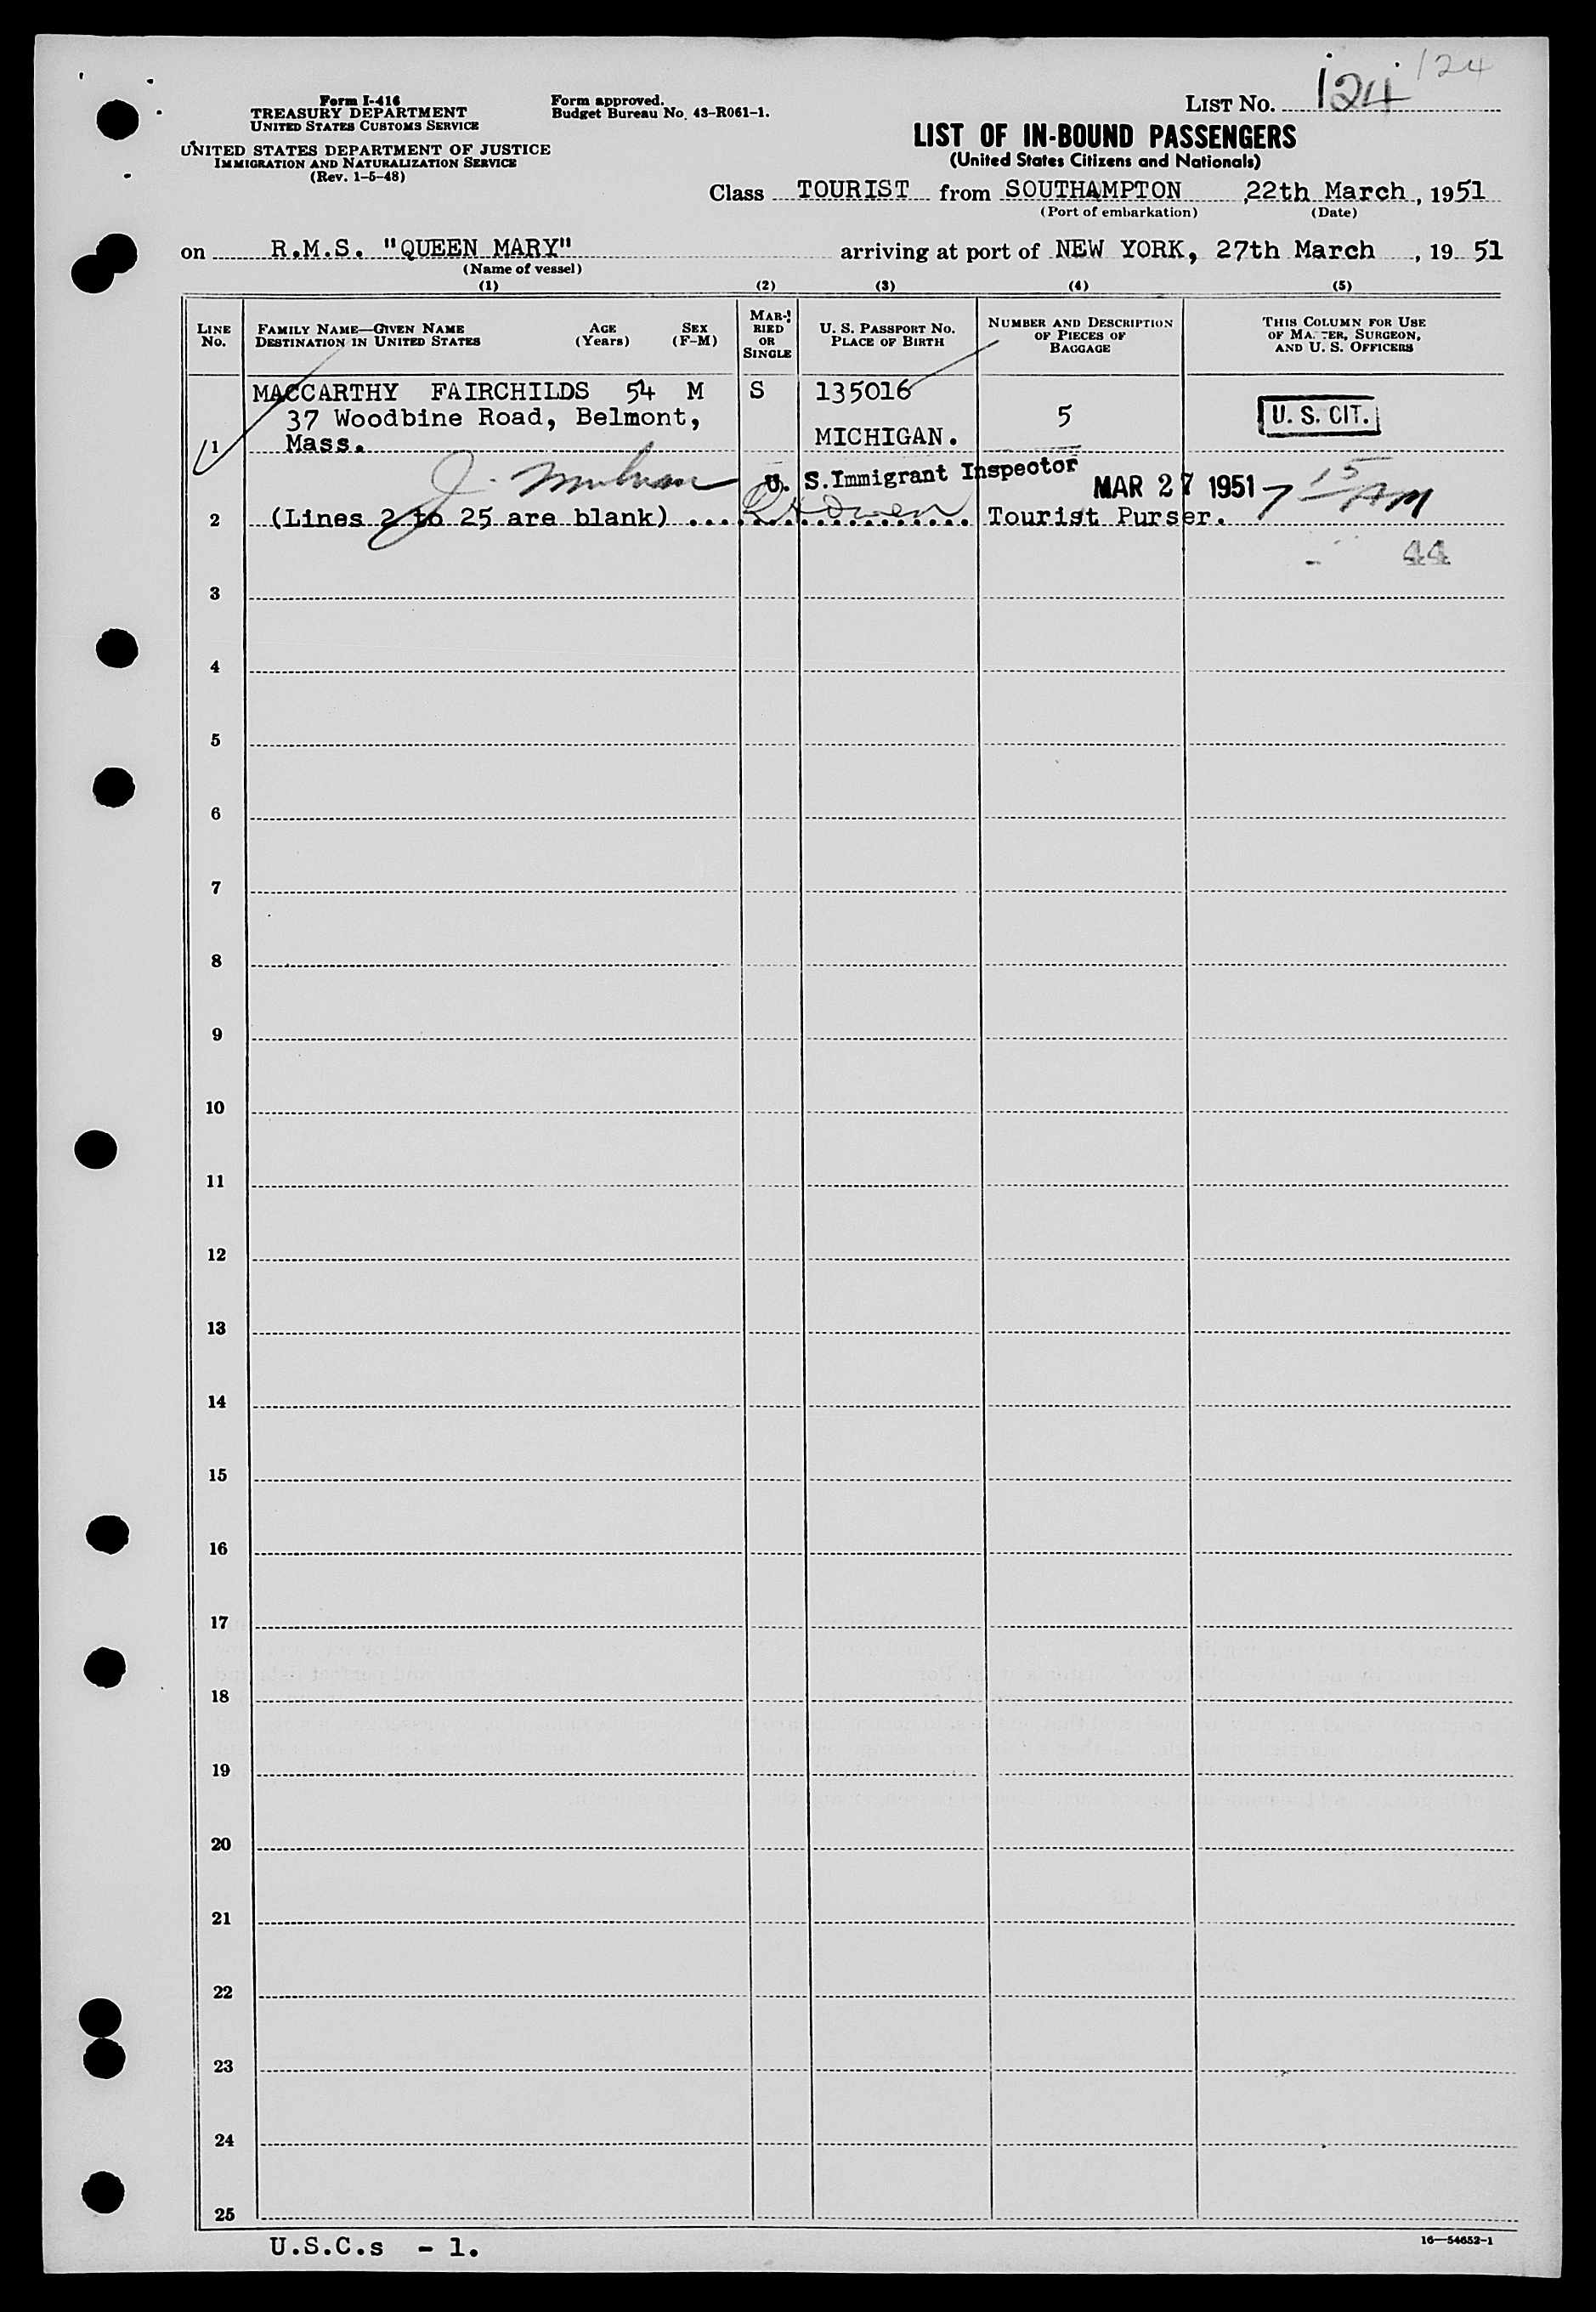 124
LIST NO. 124
Form I-416
TREASURY DEPARTMENT
UNITED STATES CUSTOMS SERVICE
UNITED STATES DEPARTMENT OF JUSTICE
IMMIGRATION AND NATURALIZATION SERVICE
(Rev. 1-5-48)
Form approved.
Budget Bureau No. 43-R061-1.
LIST OF IN-BOUND PASSENGERS
(United States Citizens and Nationals)
Class TOURIST from SOUTHAMPTON, 22th March, 1951
(Port of embarkation) (Date)
on R.M.S. "QUEEN MARY" arriving at port of NEW YORK, 27th March, 19 51
(Name of vessel)
(1) (2) (3) (4) (5)
LINE No. FAMILY NAME—GIVEN NAME DESTINATION IN UNITED STATES AGE (Years) SEX (F-M) MARRIED OR SINGLE U. S. PASSPORT NO. PLACE OF BIRTH NUMBER AND DESCRIPTION OF PIECES OF BAGGAGE THIS COLUMN FOR USE OF MASTER, SURGEON, AND U. S. OFFICERS
MACCARTHY FAIRCHILDS 54 M S 135016
37 Woodbine Road, Belmont, 5 U. S. CIT.
1 Mass. MICHIGAN.
U. S. Immigrant Inspector MAR 27 1951 7 15 AM
2 (Lines 2 to 25 are blank) Tourist Purser.
44
3
4
5
6
7
8
9
10
11
12
13
14
15
16
17
18
19
20
21
22
23
24
25
U.S.C.s - 1.
16—54652-1